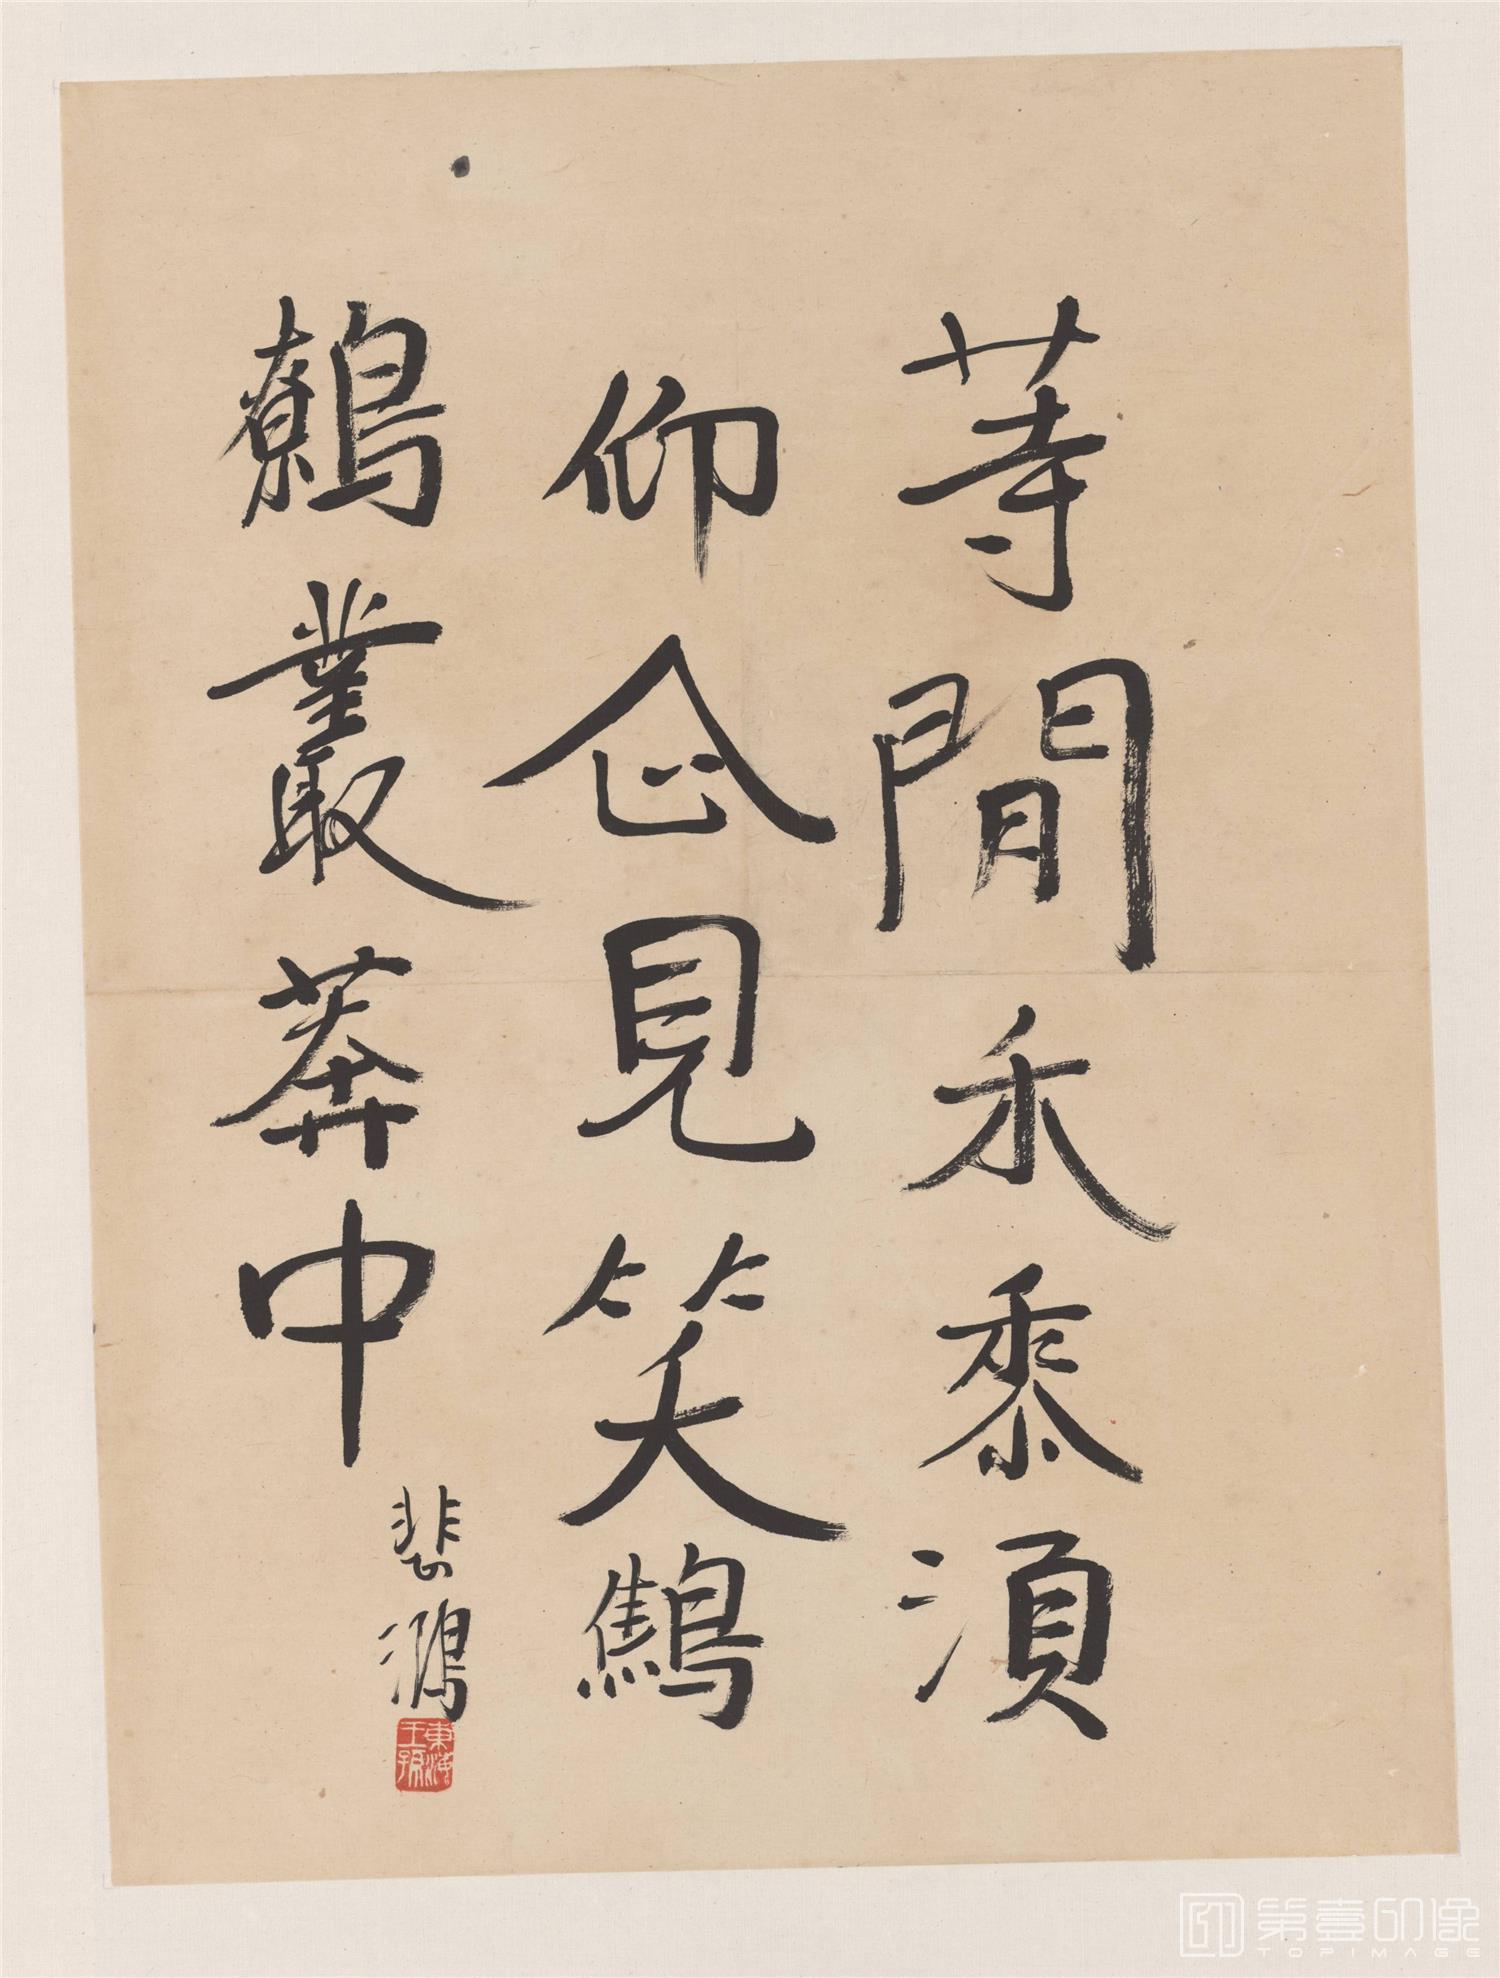 等閒禾黍須
仰企見笑鷦
鷯叢莽中
悲鴻
東海王孫
第壹印像
TOPIMAGE